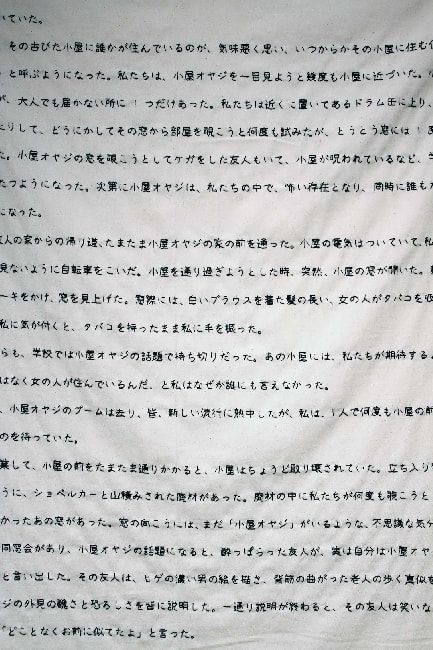 いていた。
その古びた小屋に誰かが住んでいるのが、気味悪く思い、いつからかその小屋に住む
と呼ぶようになった。私たちは、小屋オヤジを一目見ようと幾度も小屋に近づいた。
が、大人でも届かない所に1つだけあった。私たちは近くに置いてあるドラム缶に上り、
たりして、どうにかしてその窓から部屋を覗こうと何度も試みたが、とうとう窓には1
た。小屋オヤジの窓を覗こうとしてケガをした友人もいて、小屋が呪われているなど、
たつようになった。次第に小屋オヤジは、私たちの中で、怖い存在となり、同時に誰も
になった。
友人の家からの帰り道、たまたま小屋オヤジの家の前を通った。小屋の電気はついていて、私
見ないように自転車をこいだ。小屋を通り過ぎようとした時、突然、小屋の窓が開いた。
ーキをかけ、窓を見上げた。窓際には、白いブラウスを着た髪の長い、女の人がタバコを
私に気が付くと、タバコを持ったまま私に手を振った。
らも、学校では小屋オヤジの話題で持ち切りだった。あの小屋には、私たちが期待する
はなく女の人が住んでいるんだ、と私はなぜか誰にも言えなかった。
、小屋オヤジのブームは去り、皆、新しい流行に熱中したが、私は、1人で何度も小屋の前
のを待っていた。
業して、小屋の前をたまたま通りかかると、小屋はちょうど取り壊されていた。立ち入り
うに、ショベルカーと山積みされた廃材があった。廃材の中に私たちが何度も覗こうと
かったあの窓があった。窓の向こうには、まだ「小屋オヤジ」がいるような、不思議な気
同窓会があり、小屋オヤジの話題になると、酔っぱらった友人が、実は自分は小屋オヤ
と言い出した。その友人は、ヒゲの濃い男の絵を描き、背筋の曲がった老人の歩く真似
ジの外見の醜さと恐ろしさを皆に説明した。一通り説明が終わると、その友人は笑いな
「どことなくお前に似てたよ」と言った。